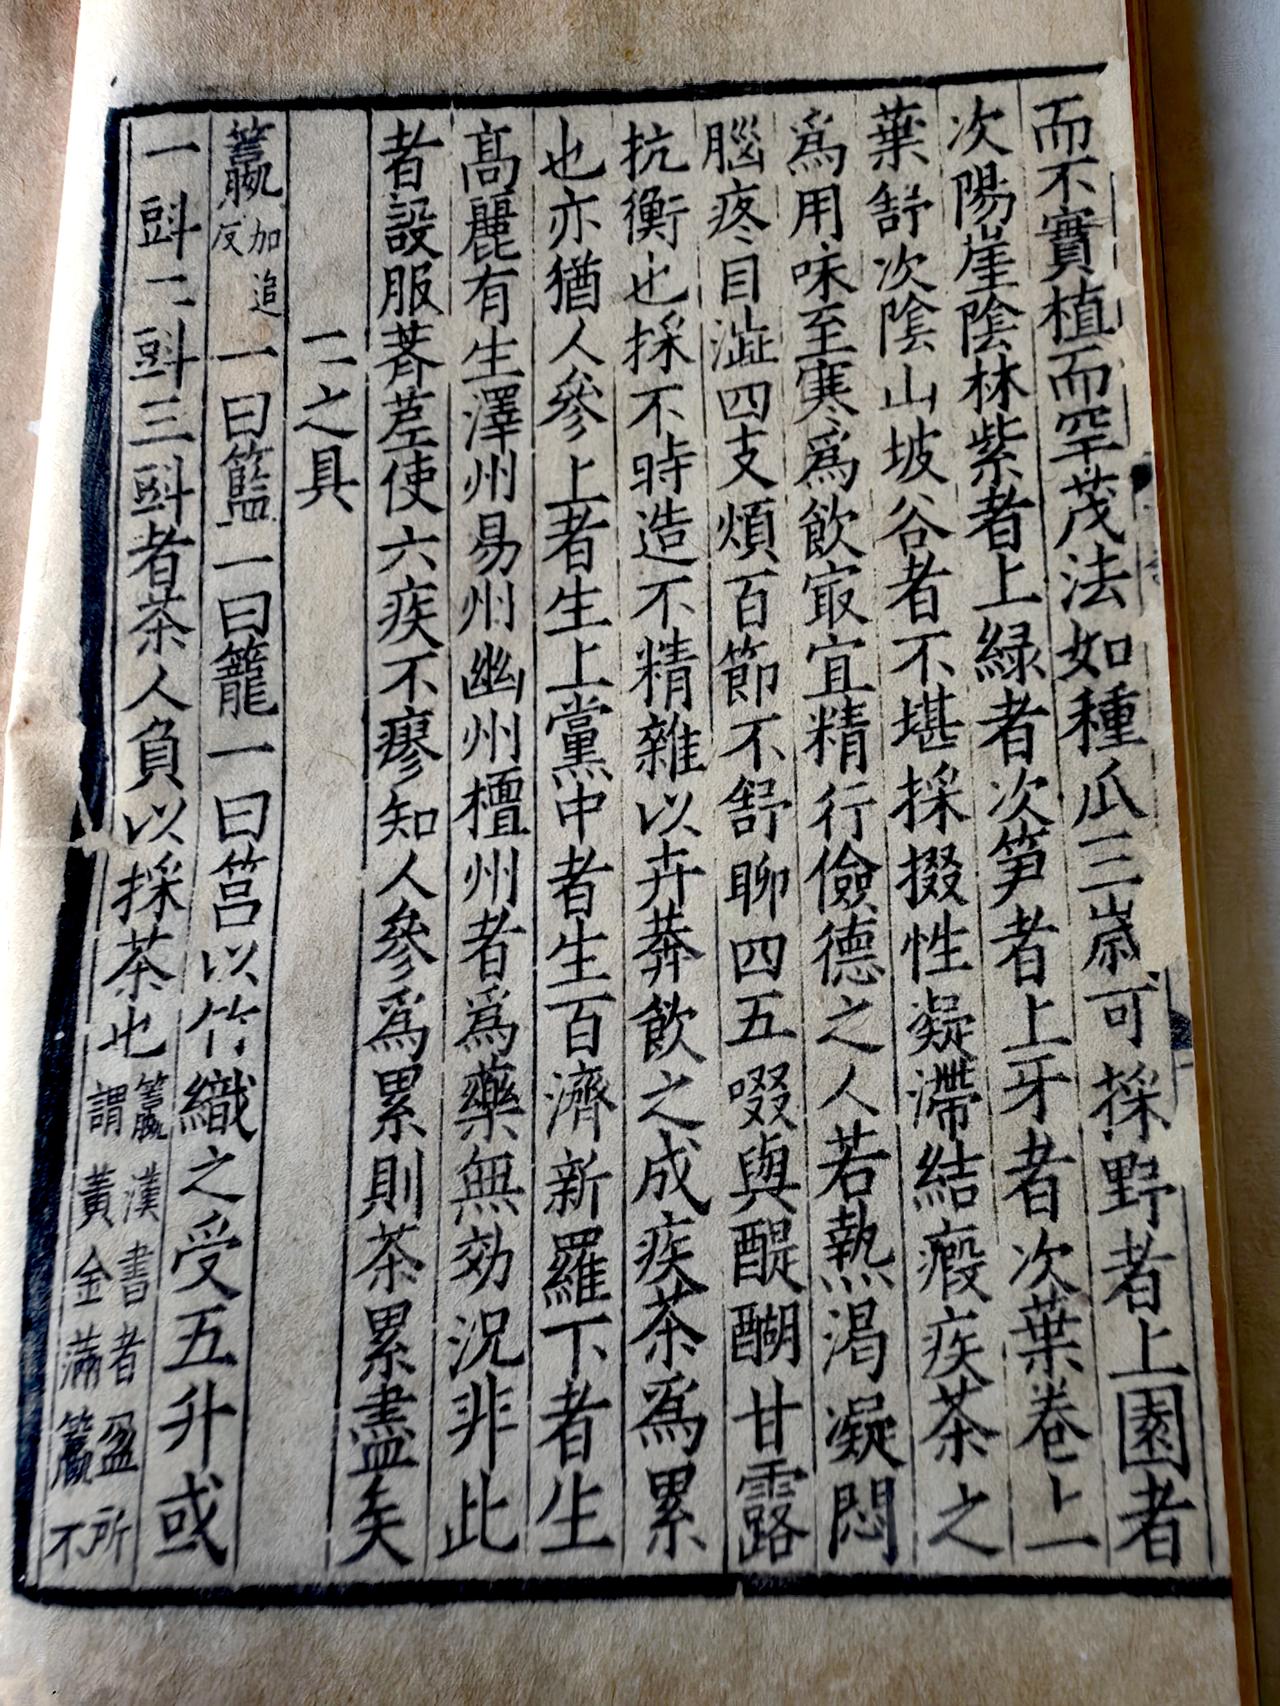 而不實植而罕茂法如種瓜三嵗可採野者上園者
次陽崖陰林紫者上緑者次笋者上牙者次葉卷上
葉舒次陰山坡谷者不堪採掇性凝滯結瘕疾茶之
爲用味至寒爲飲㝡宜精行儉德之人若熱渴凝悶
腦疼目澁四支煩百節不舒聊四五啜與醍醐甘露
抗衡也採不時造不精雜以卉莽飲之成疾茶爲累
也亦猶人參上者生上黨中者生百濟新羅下者生
高麗有生澤州易州幽州檀州者爲藥無効況非此
者設服薺苨使六疾不瘳知人參爲累則茶累盡矣
二之具
籯加追反一曰籃一曰籠一曰筥以竹織之受五升或
一㪷二㪷三㪷者茶人負以採茶也籯漢書者盈所謂黃金滿籯不